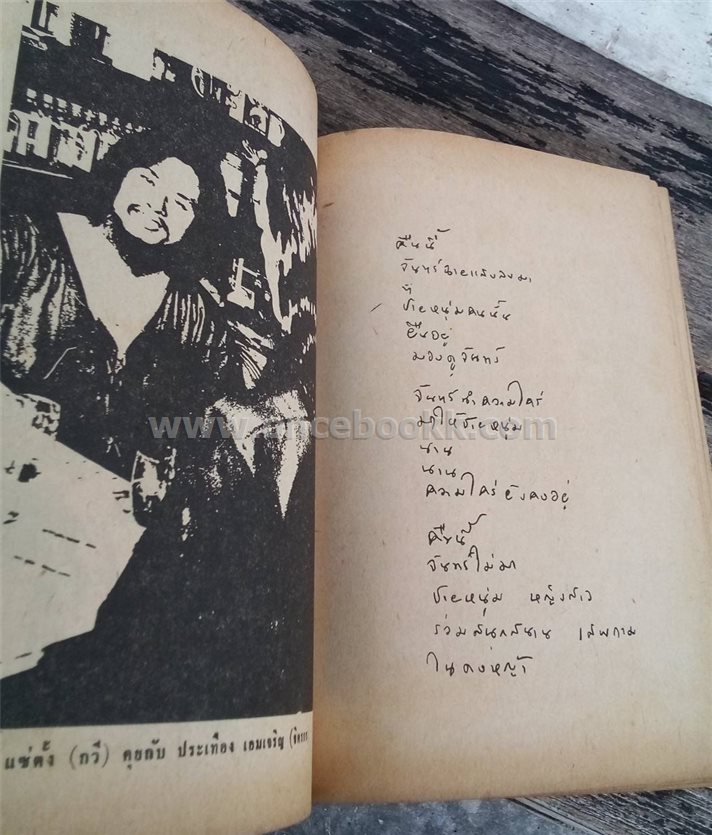 แซ่ตั้ง (กวี) คุยกับ ประเทือง เอมเจริญ (จิตรกร
คืนนี้
จันทร์ฉายแสงลงมา
ที่
ชายหนุ่มคนนั้น
ยืนอยู่
มองดูจันทร์
จันทร์นำความใคร่
มาให้ชายหนุ่ม
นาน
นาน
ความใคร่ยังคงอยู่
คืนนี้
จันทร์ไม่มา
ชายหนุ่ม หญิงสาว
ร่วมสนุกสนาน เสพกาม
ในดงหญ้า
www.ancebookk.com